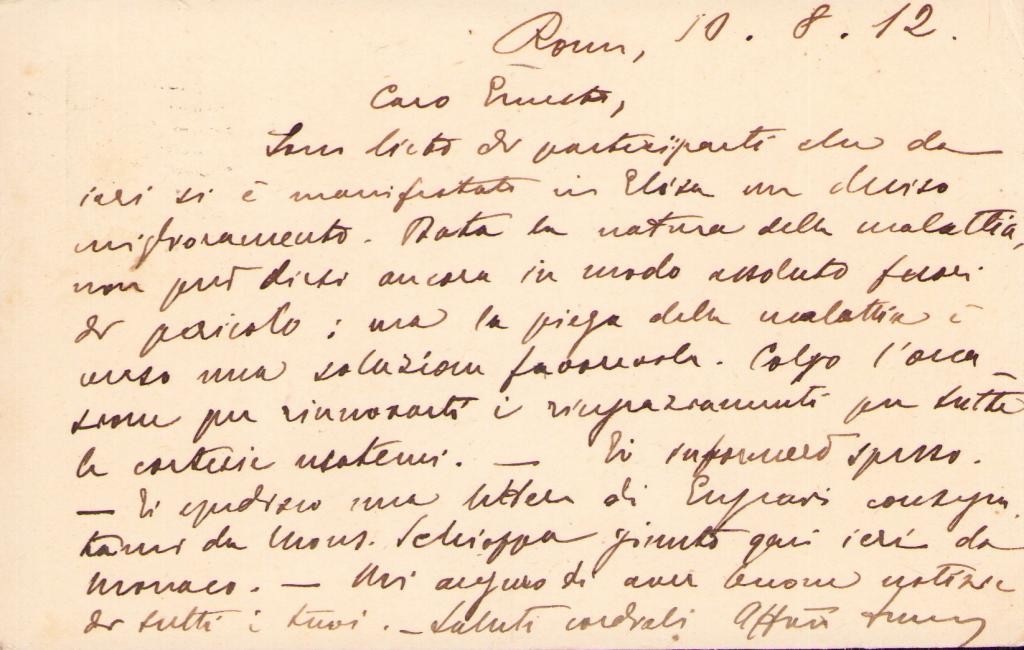 Roma, 10.8.12.
Caro Ernesto,
Sono lieto di parteciparti che da
ieri si è manifestato in Elisa un deciso
miglioramento. Data la natura della malattia,
non può dirsi ancora in modo assoluto fuori
di pericolo; ma la piega della malattia è
verso una soluzione favorevole. Colgo l'occa
sione per rinnovarti i ringraziamenti per tutte
le cortesie usatemi. — Ti informerò spesso.
— Ti spedisco una lettera di consegna
tami da Mons. Schioppa giunto qui ieri da
Monaco. — Mi auguro di aver buone notizie
di tutti i tuoi. — Saluti cordiali Aff.mo